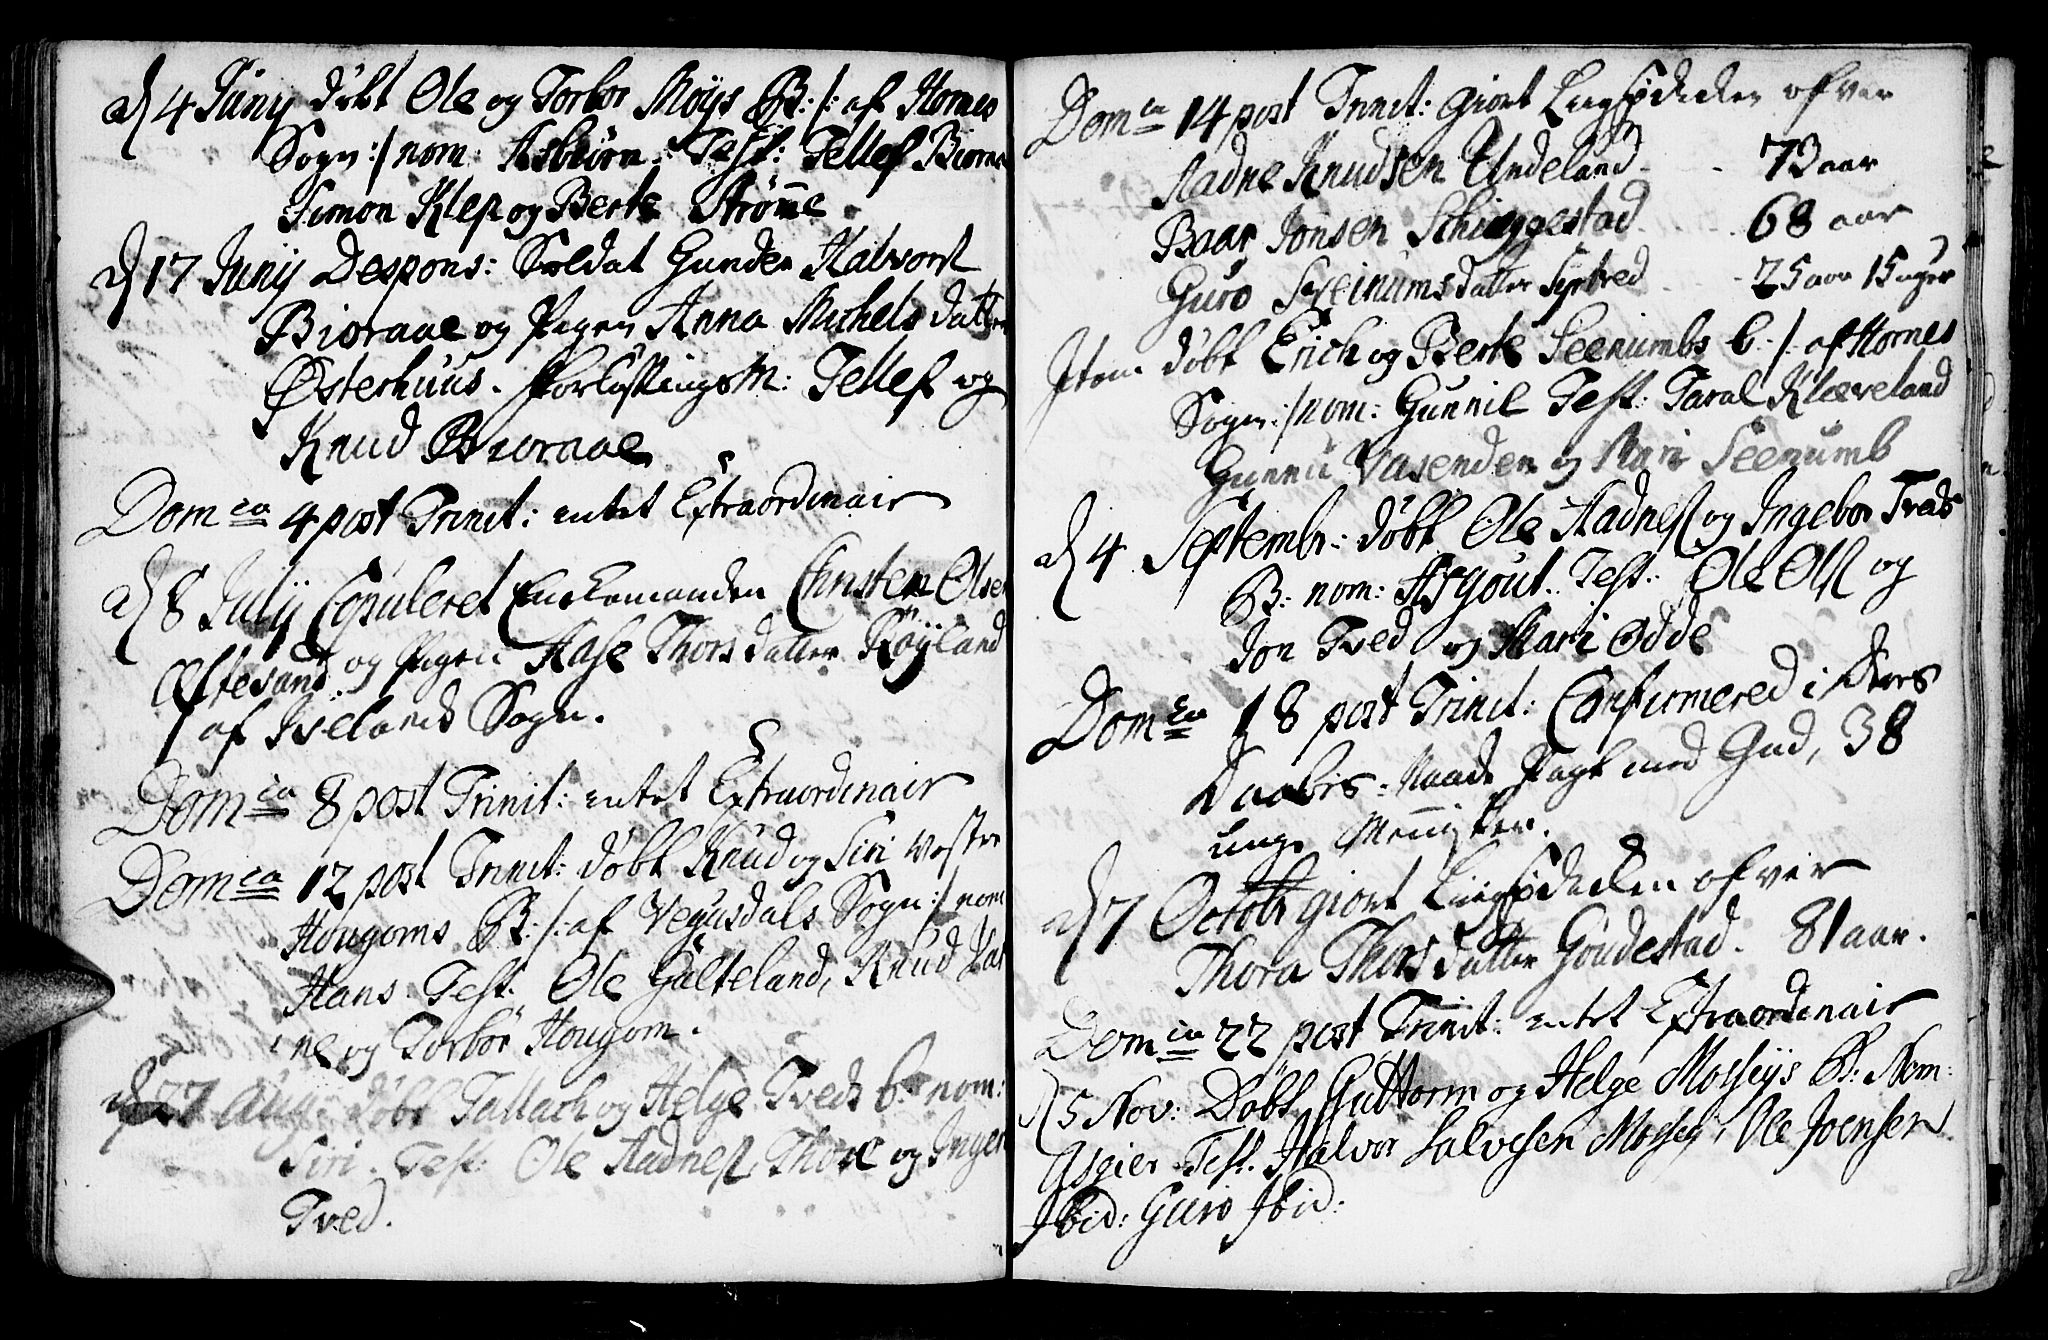 d 4 Junij döbt Ole og Torbor Moÿs B: /: af Hornes
Sogn :/ nom: Asbiörn. Test: Tellef Biorn
Simon Klep og Berte Strømme
d 17 Junij Despons: Soldat Gunder Halvors
Bioraae og Pigen Anna Michels datter
Østerhuus. Forloftningsm: Tellef og
Knud Bioraae
Dom ca 4 post Trinit: intet Extraordinair
d 8 Julij Copuleret Enckemanden Christen Olsen
Oftesand og Pigen Aase Thors datter Röÿland
/ af Iveland Sogn.
Dom ca 8 post Trinit: intet Extraordinair
Dom ca 12 post Trinit: döbt Knud og Siri Vestre
Hougoms B: /: af Vegusdals Sogn :/ nom
Hans. Test. Ole Galteland, Knud
ne og Torbor Hougom.
d 27 Aug: döbt Tallach og Helge Tveds b. nom:
Siri. Test. Ole Aadness, Thore og Inger
Tved.
Dom ca 14 post Trinit: giort Liigprædicken ofver
Aadne Knudsen Undeland - - 73 aar
Baar Jonsen Schieggestad. - 68 aar
Guro Steinums datter Syrtved - 25 aar 15 uger
Item döbt Erich og Berte Seenumbs b. /: af Hornes
Sogn :/ nom: Gunnil Test: Taral Kleveland
Gunnu Vasenden og Mari Seenumb
d 4 Septembr: döbt Ole Aadness og Ingebor Tveds
B: nom: Asgout. Test: Ole Ols og
Jon Tved og Mari Odde
Dom ca 18 post Trinit: Confirmered i Deres
Daabis-Naade Pagt med Gud, 38
unge Mennisker.
d 7 Octobr giort Liigprædicken ofver
Thora Thors datter Goudestad. 81 aar.
Dom ca 22 post Trinit: intet Extraordinair
d 5 Nov: Döbt Guttorm og Helge Mosseÿs B: Nom:
Asgier. Test. Halvor Salvesen Mossey, Ole Joensen
Ibid: Guro Ibid: